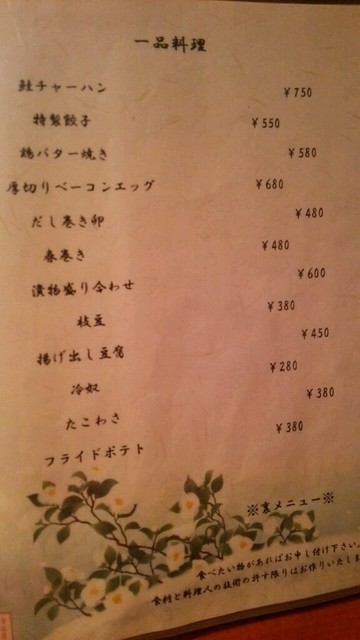 一品料理
鮭チャーハン ¥750
特製餃子 ¥550
鶏バター焼き ¥580
厚切りベーコンエッグ ¥680
だし巻き卵 ¥480
春巻き ¥480
漬物盛り合わせ ¥600
枝豆 ¥380
揚げ出し豆腐 ¥450
冷奴 ¥280
たこわさ ¥380
フライドポテト ¥380
※裏メニュー※
食べたい物があればお申し付け下さい。
食材と料理人の技術の許す限りはお作りいたしま